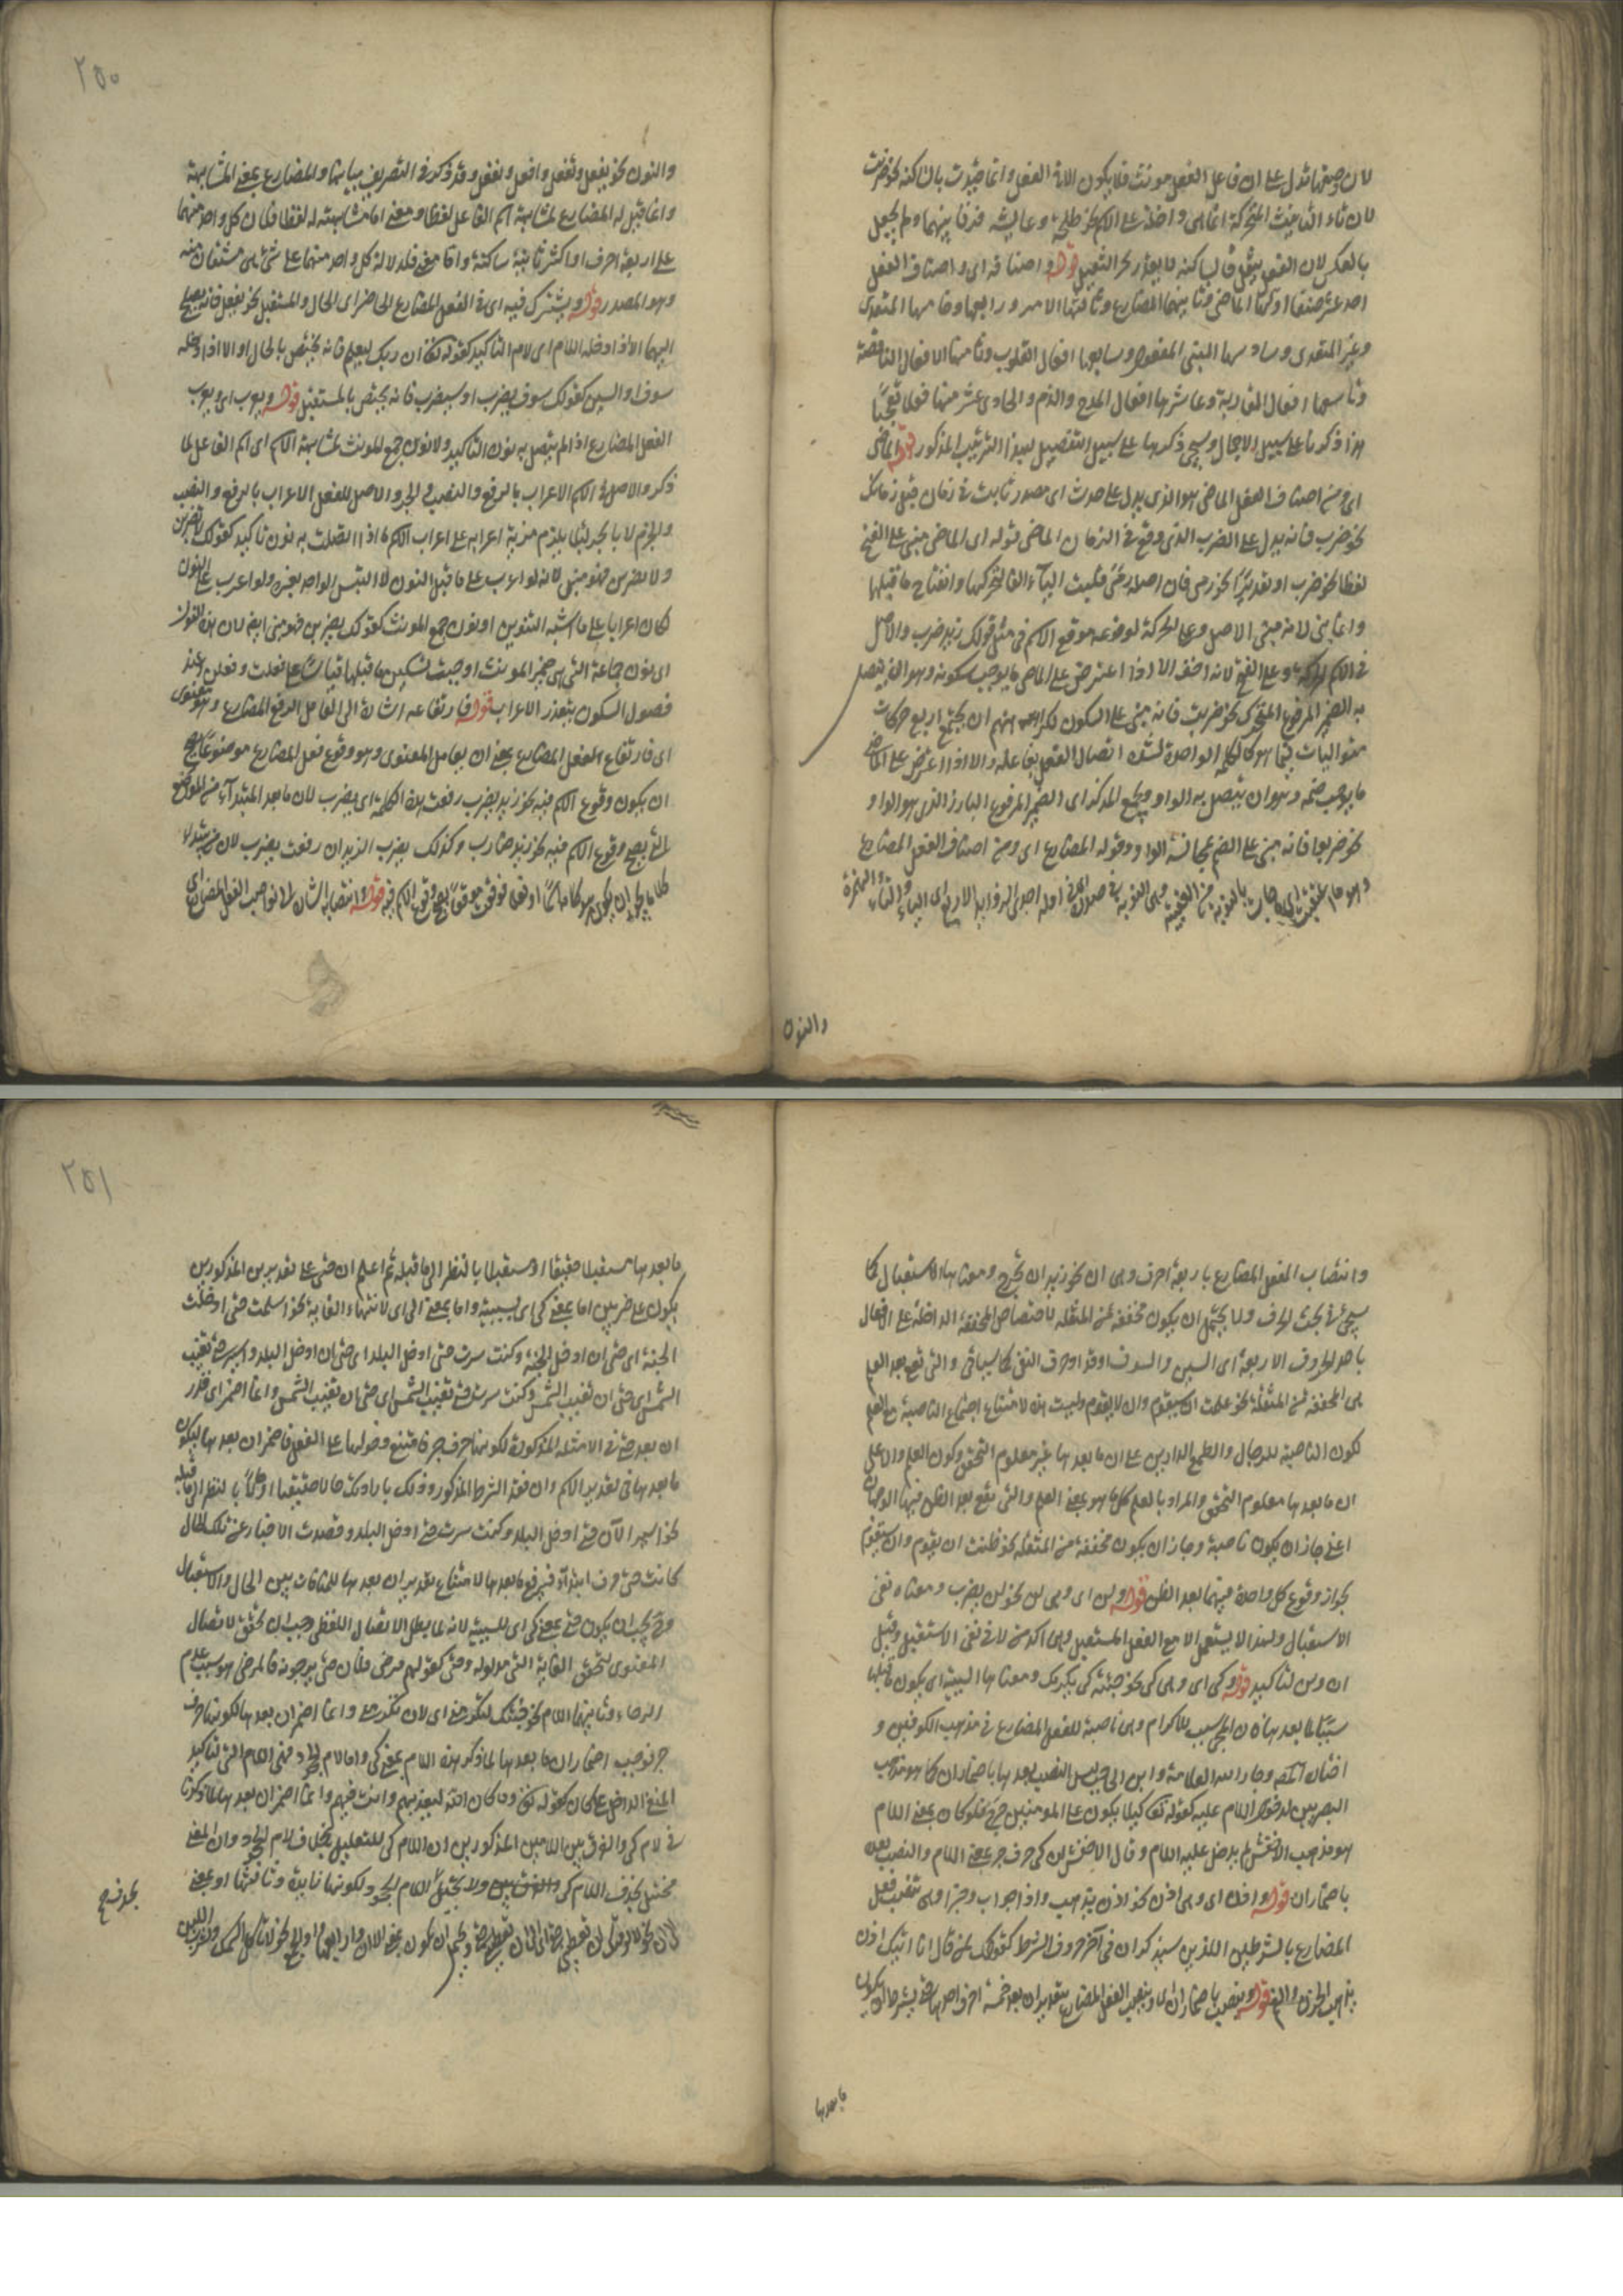 لان وضعها تدل على ان فاعل الفعل مونث فلا يكون الا فى الفعل وانما قيدت بالساكنة نحو ضربت
لان تاء التانيث المتحركة انما هى داخلة على الاسم نحو طلحة وعايشه فرقا بينهما ولم يجعل
بالعكس لان الفعل ثقيل قوله واصنافه اى واصناف الفعل
احد عشر صنفا اولها الماضى وثانيها المضارع وثالثها الامر ورابعها وخامسها المتعدى
وغير المتعدى وسادسها المبنى للمفعول وسابعها افعال القلوب وثامنها الافعال الناقصة
وتاسعها افعال المقاربة وعاشرها افعال المدح والذم والحادى عشر منها فعلا تعجب
هذا ذكرها على سبيل الاجمال وسيجئ ذكرها على سبيل التفصيل لهذا الترتيب المذكور قوله الماضى
اى ومن اصناف الفعل الماضى هو الذى يدل على حدث اى مصدر ثابت فى زمان قبل زمانك
نحو ضرب فانه يدل على الضرب الذى وقع فى الزمان الماضى قوله اى الماضى مبنى على الفتح
لفظا نحو ضرب او تقديرا نحو رمى فان اصله رمى قلبت الياء الفا لتحركها وانفتاح ما قبلها
وانما بنى لانه مبنى الاصل وعلى الحركة لوقوعه موقع الاسم فى مثل قولك زيد ضرب والاصل
فى الاسم الحركة وعلى الفتح لانه اخف الا اذا اعترض على الماضى ما يوجب سكونه وهو ان يتصل
به الضمير المرفوع المتحرك نحو ضربت فانه مبنى على السكون كراهتهم ان يجتمع اربع حركات
متواليات فيما هو كالكلمة الواحدة لشدة اتصال الفعل بفاعله والا اذا اعترض على الماضى
ما يوجب ضمه وهو ان يتصل به الواو ويجمع المذكر اى الضمير المرفوع البارز الذى هو الواو
نحو ضربوا فانه مبنى على الضم لمجانسة الواو وقوله المضارع اى ومن اصناف الفعل المضارع
والنون
٢٥٠
والنون نحو يفعل وتفعل وافعل ونفعل وقد ذكر فى التصريف بيانها والمضارع بمعنى المشابهة
وانما قيل له المضارع لمشابهة اسم الفاعل لفظا ومعنى اما مشابهته له لفظا فلان كل واحد منهما
على اربعة احرف او اكثر ثانية ساكنة واما معنى فلدلالة كل واحد منهما على شئ مشتقان منه
وهو المصدر قوله ويشترك فيه اى فى الفعل المضارع الحاضر اى الحال والمستقبل نحو يفعل فانه يصلح
اليهما الا اذا دخله اللام اى لام التاكيد كقوله تعالى ان ربك ليعلم فانه يختص بالحال او الا اذا دخله
سوف او السين كقولك سوف يضرب او سيضرب فانه يختص بالمستقبل قوله ويعرب اى ويعرب
الفعل المضارع اذا لم يتصل به نون التاكيد ولا نون جمع المونث لمشابهة الاسم اى اسم الفاعل لما
ذكر والاصل فى الاسم الاعراب بالرفع والنصب والجر والاصل للفعل الاعراب بالرفع والنصب
والجزم لا بالجر لئلا يلزم مزية اعرابه على اعراب الاسم اما اذا اتصلت به نون تاكيد كقولك
ولا يضربن فهو مبنى لانه لو اعرب على ما قبل النون لالتبس الواحد بغيره ولو اعرب على النون
لكان اعرابا على ما اشبه التنوين او نون جمع المونث كقولك يضربن فهو مبنى ايضا لان هذه النون
اى نون جماعة التى هى ضمير المونث اوجبت تسكين ما قبلها قياسا على فعلت وفعلن عند
حصول السكون يتعذر الاعراب قوله فارتفاعه اشارة الى العامل الرفع المضارع وهو معنوى
اى فارتفاع الفعل المضارع بمعنى ان يعامل المعنوى وهو وقوع فعل المضارع موضوعا يصح
ان يكون وقوع الاسم فيه نحو زيد يضرب رفعت هذه الكلمة اى يضرب لان ما بعد المبتدأ من المواضع
التى يصح وقوع الاسم فيه نحو زيد ضارب وكذلك يضرب الزيدان رفعت يضرب لان من يبتدى
وانتصاب الفعل المضارع باربعة احرف وهى ان نحو زيد ان يخرج ومعناها الاستقبال كما
سيجئ فى بحث الحرف ولا يحتمل ان يكون مخففة من المثقلة لاختصاص المخففة الداخلة على الافعال
باحد الحروف الاربعة اى السين والسوف او قد او حرف النفى كما سياتى والتى تقع بعد العلم
هى المخففة من المثقلة نحو علمت ان سيقوم وان لا يقوم وليست هذه لامتناع اجتماع الناصبة مع العلم
لكون الناصبة للرجاء والطمع الدالين على ان ما بعدها غير معلوم التحقق وكون العلم دالا على
ان ما بعدها معلوم التحقق والمراد بالعلم كل ما هو بمعنى العلم والتى تقع بعد الظن فيها الوجهان
اعنى جاز ان يكون ناصبة وجاز ان يكون مخففة من المثقلة نحو ظننت ان يقوم وان سيقوم
بجواز وقوع كل واحدة منهما بعد الظن قوله ولن اى وهى لن نحو لن يضرب ومعناه نفى
الاستقبال ولهذا لا يستعمل الا مع الفعل المستقبل وهى اكد من لا فى نفى الاستقبل وقيل
ان لن لتاكيد قوله وكى اى وهى كى نحو جئتك كى يكرمك ومعناها السببية اى يكون ما قبلها
سببا لما بعدها ان المجئ سبب للاكرام وهى ناصبة للفعل المضارع فى مذهب الكوفيين و
اختاره المص وجار الله العلامة وابن الحاجب ليس النصب بعدها باضمار ان كما هو مذهب
البصريين لدخول اللام عليه كقوله تعالى كيلا يكون على المومنين حرج فلو كان بمعنى اللام
هو مذهب الاخفش لم يدخل عليه اللام وقال الاخفش ان كى حرف جر بمعنى اللام والنصب بعده
باضمار ان قوله واذن اى وهى اذن نحو اذن يذهب واذا جواب وجزا وهى تنصب فعل
المضارع بالشرطين اللذين سيذكران فى آخر حروف الشرط كقولك لمن قال انا اتيك اذن
ما بعدها
٢٥١
ما بعدها مستقبلا حقيقا او مستقبلا بالنظر الى ما قبله ثم اعلم ان حتى على تقديرين المذكورين
يكون على ضربين اما بمعنى كى اى لسببية واما بمعنى الى اى لانتهاء الغاية نحو اسلمت حتى ادخلت
الجنة اى حتى ان ادخل الجنة وكنت سرت حتى ادخل البلد اى حتى ان ادخل البلد واسير حتى تغيب
الشمس اى حتى ان تغيب الشمس وكنت سرت حتى تغيب الشمس اى حتى ان تغيب الشمس وانما اضمر اى قدر
ان بعد حتى فى الامثلة المذكورة لكونها حرف جر فامتنع دخولها على الفعل فاضمر ان بعدها ليكون
ما بعدها فى تقدير الاسم وان فقد الشرط المذكور وذلك بارادتك حالا حقيقيا او حكما بالنظر الى ما قبله
نحو اسير الآن حتى ادخل البلد وكنت سرت حتى ادخل البلد وقصدت الاخبار عن تلك الحال
كانت حتى حرف ابتداء فيرفع ما بعدها لامتناع تقدير ان بعدها للمنافات بين الحال والاستقبال
وح يجب ان يكون حتى بمعنى كى اى للسببية لانه لما بطل الاتصال اللفظى وجب ان تحقق الاتصال
المعنوى لتحقق الغاية التى مدلوله وحتى كقولهم مرض فلان حتى يرجونه فالمرض هو سبب عدم
الرجاء وثانيها اللام نحو جئتك لتكرمنى اى لان تكرمنى وانما اضمر ان بعدها لكونها حرف
جر فوجب اضمار ان ما بعدها لما ذكر هذه اللام بمعنى كى واما لام الجحد فهى اللام التى لتاكيد
المنفى الداخل على كان كقوله تعالى وما كان الله ليعذبهم وانت فيهم وانما اضمر ان بعدها لما ذكرنا
فى لام كى والفرق بين اللامين المذكورين ان اللام كى للتعليل بخلاف لام الجحد وان المعنى
مختل بحذف اللام كى ولا يختل اللام الجحود لكونها زايدة وثالثها او بمعنى
بحذف صح